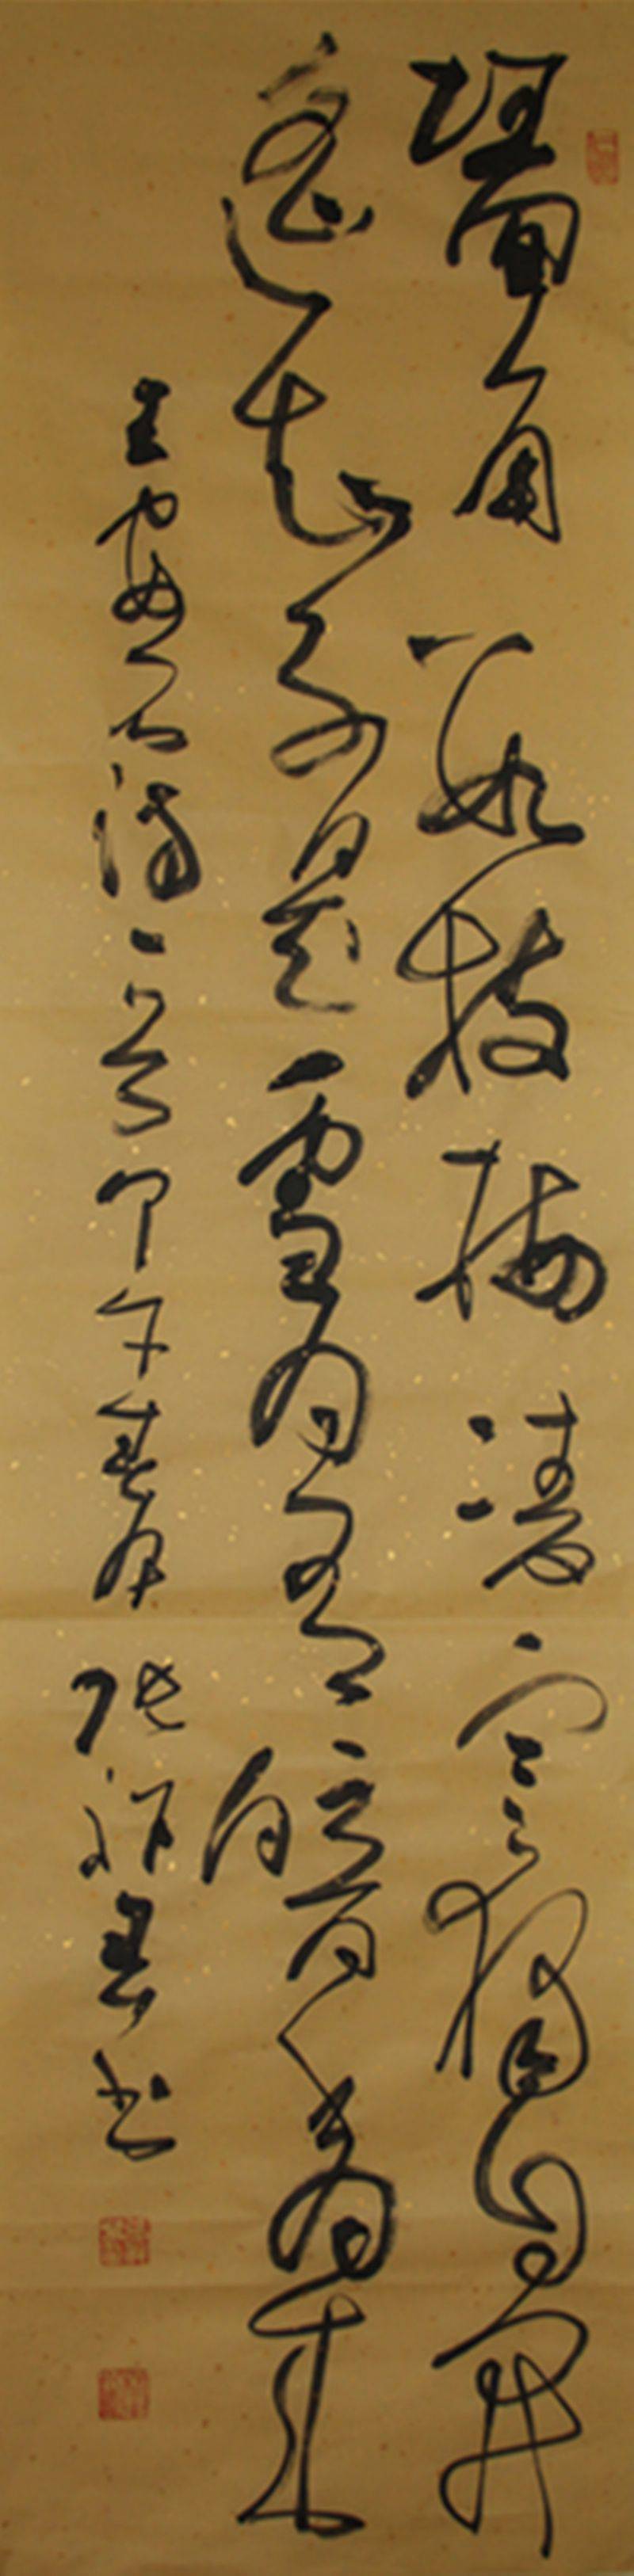 墙角数枝梅凌寒独自开
遥知不是雪为有暗香来
王安石诗一首甲午春月张
书